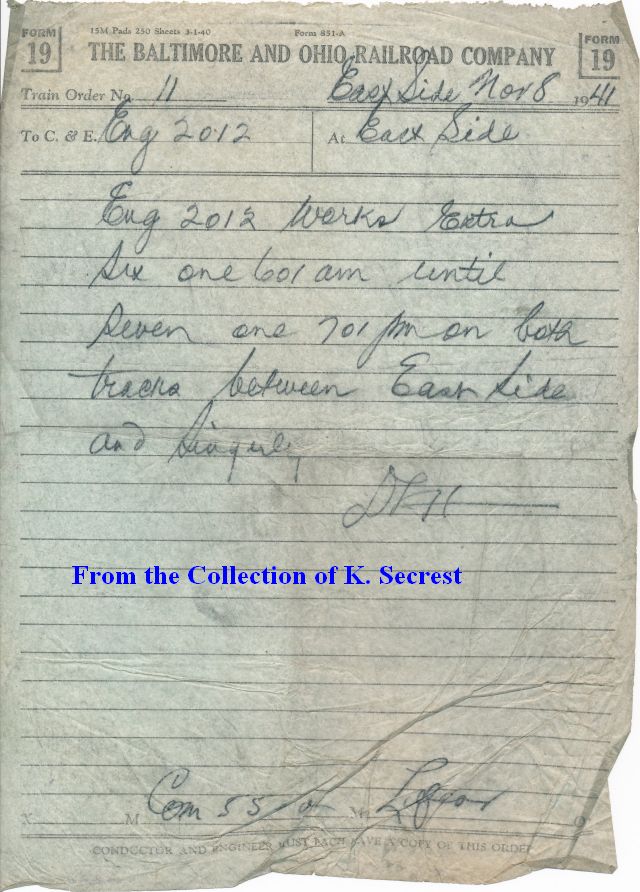 FORM 19
15M Pads 250 Sheets 3-1-40 Form 851-A
FORM 19
THE BALTIMORE AND OHIO RAILROAD COMPANY
Train Order No 11 East Side Nov 8 1941
To C. & E. Eng 2012 At East Side
Eng 2012 Works Extra
Six one 601 am until
Seven one 701 pm on both
tracks between East Side
and Singerly
From the Collection of K. Secrest
M Com 55 M
CONDUCTOR AND ENGINEER MUST EACH HAVE A COPY OF THIS ORDER